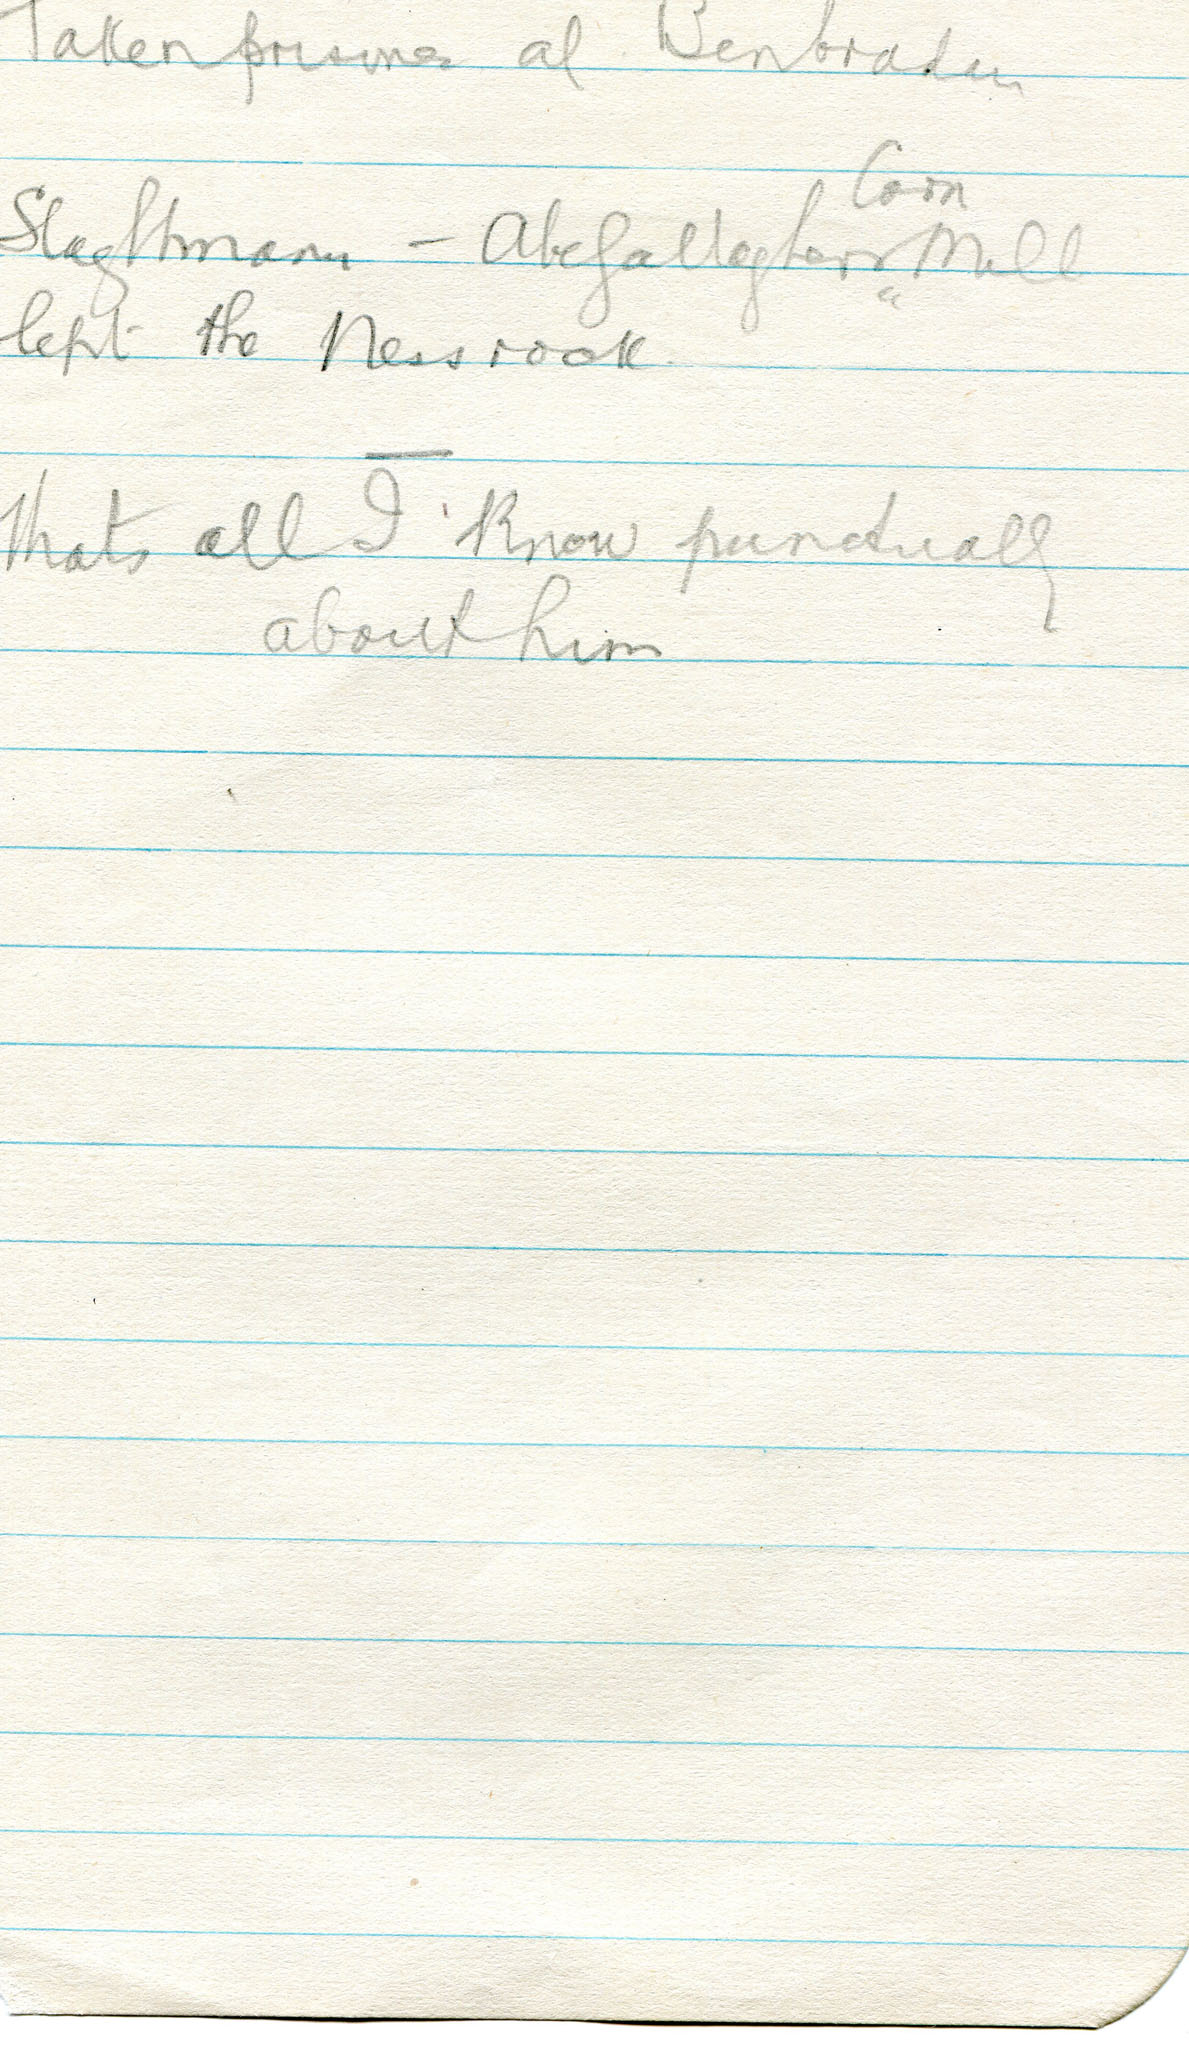 Taken prisoner at Benbraden
Corn
Slaghtmanu - Abe Gallaghers " Mill
lept the Ness rock
Thats all I know punctually
about him